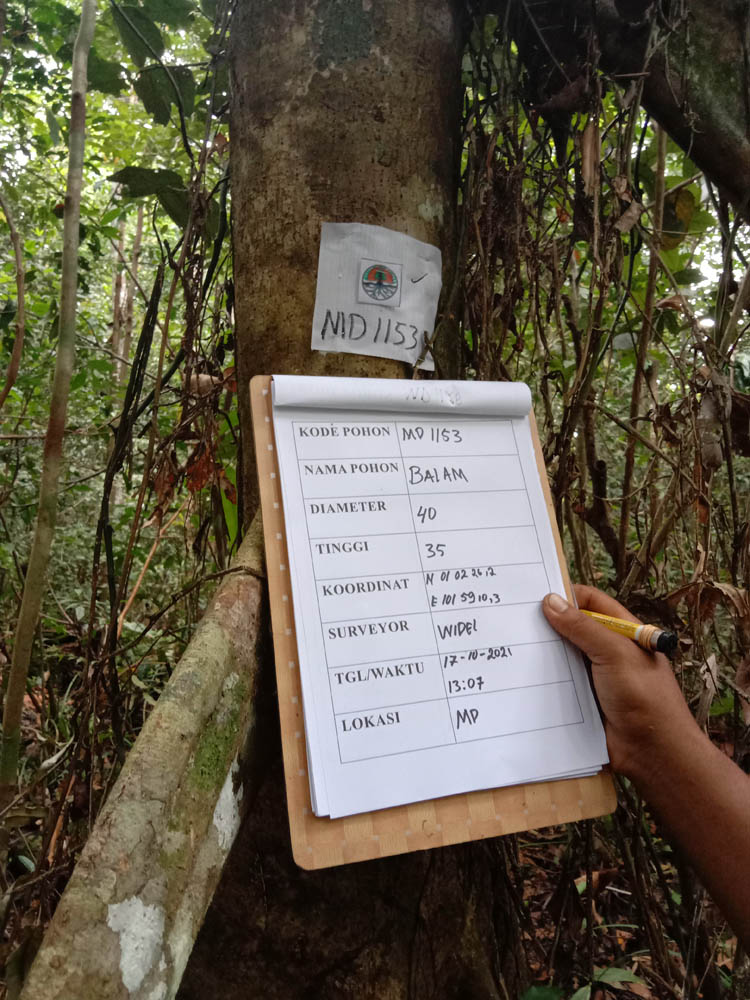 MD 1153
KODE POHON MD 1153
NAMA POHON BALAM
DIAMETER 40
TINGGI 35
KOORDINAT N 01 02 26,2
E 101 59 10,3
SURVEYOR WIDEL
TGL/WAKTU 17-10-2021
13:07
LOKASI MD